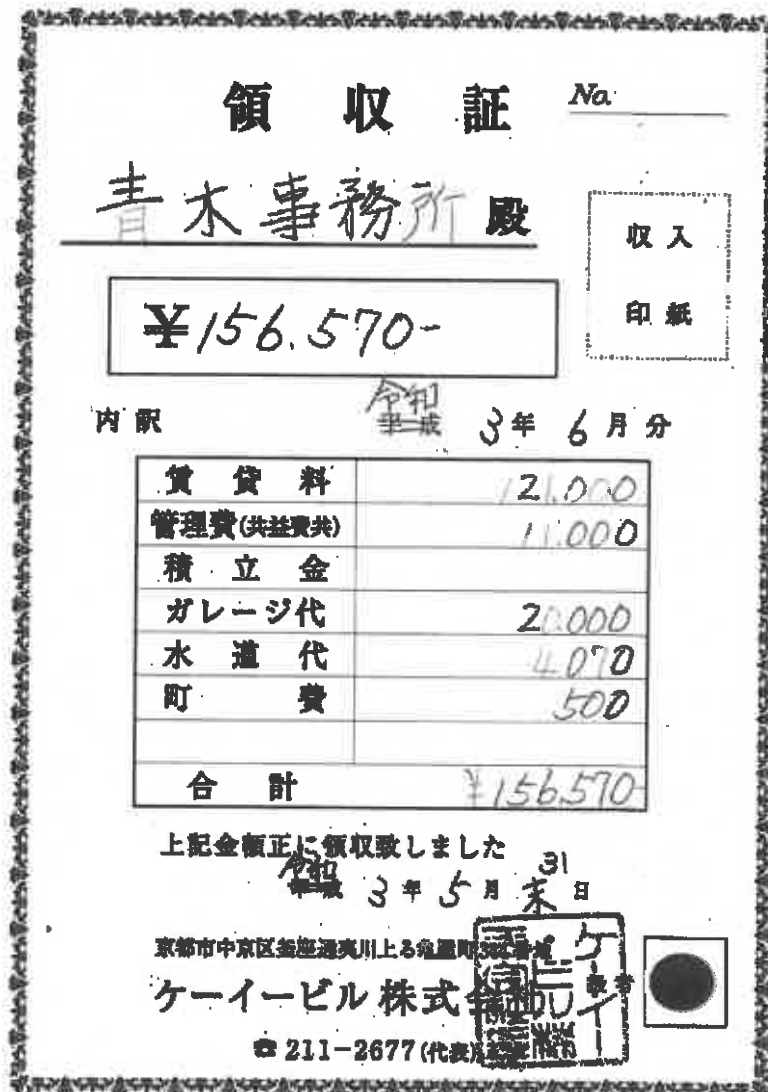 領収証 No.
青木事務所 殿
収入
印紙
¥156.570-
令和
内訳 平成 3年 6月分
賃貸料 121.000
管理費(共益費共) 11.000
積立金
ガレージ代 20.000
水道代 4.070
町費 500
合計 ¥156.570-
上記金額正に領収致しました
令和 31
平成 3年 5月 末日
京都市中京区釜座通夷川上る亀屋町
ケーイービル株式会社
☎ 211-2677(代表)